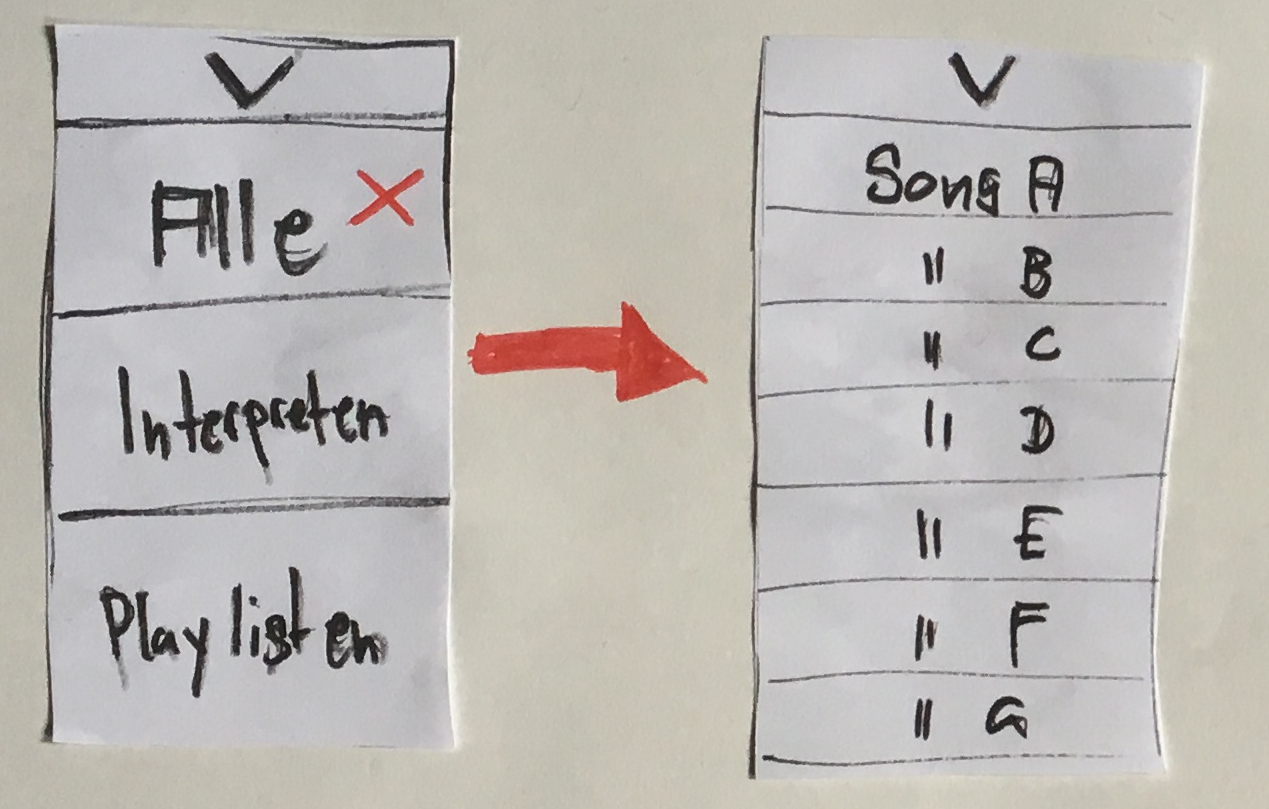 Alle
Interpreten
Playlisten
Song A
" B
" C
" D
" E
" F
" G